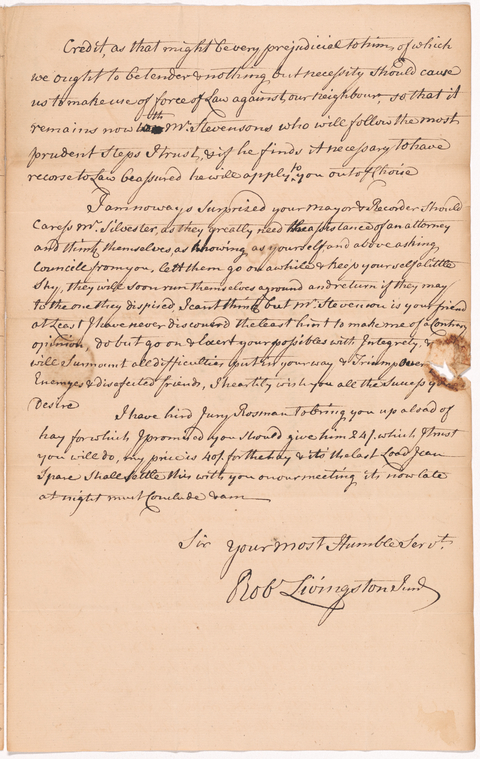 Credit, as that might be very prejudicial to him, of which
we ought to be tender & nothing but necessity should cause
us to make use of force of Law against our neighbour, so that it
remains now with Mr. Stevensons who will follow the most
prudent steps I trust, & if he finds it necessary to have
recorse to Law be assured he will apply to you out of Choise
I am noways Surprized your Mayor & Recorder Should
Caress Mr. Silvester, as they greatly need the assistance of an attorney
and think themselves, as knowing as yourself and above asking
Councile from you, lett them go on awhile & keep yourself a little
Shy, they will soon run themselves aground and return if they may
to the one they dispised, I cant think but Mr. Stevenson is your friend
at Least I have never discoverd the least hint to make me of a Contrary
opinion, do but go on & Exert your possibles with Integrety, &
will Surmount all difficulties put in your way & Triump over
Enemyes & disafected friends, I heartily wish you all the Sucess y
Desire
I have hird Jury Rosman to bring you up a load of
hay for which I promised you Should give him 24/. which I trust
you will do, my price is 40/. for the hay & its the last Load I can
Spare Shall settle this with you on our meeting its now late
at night must Conclude & am
Sir your most Humble Servt.
Robt Livingston Junr